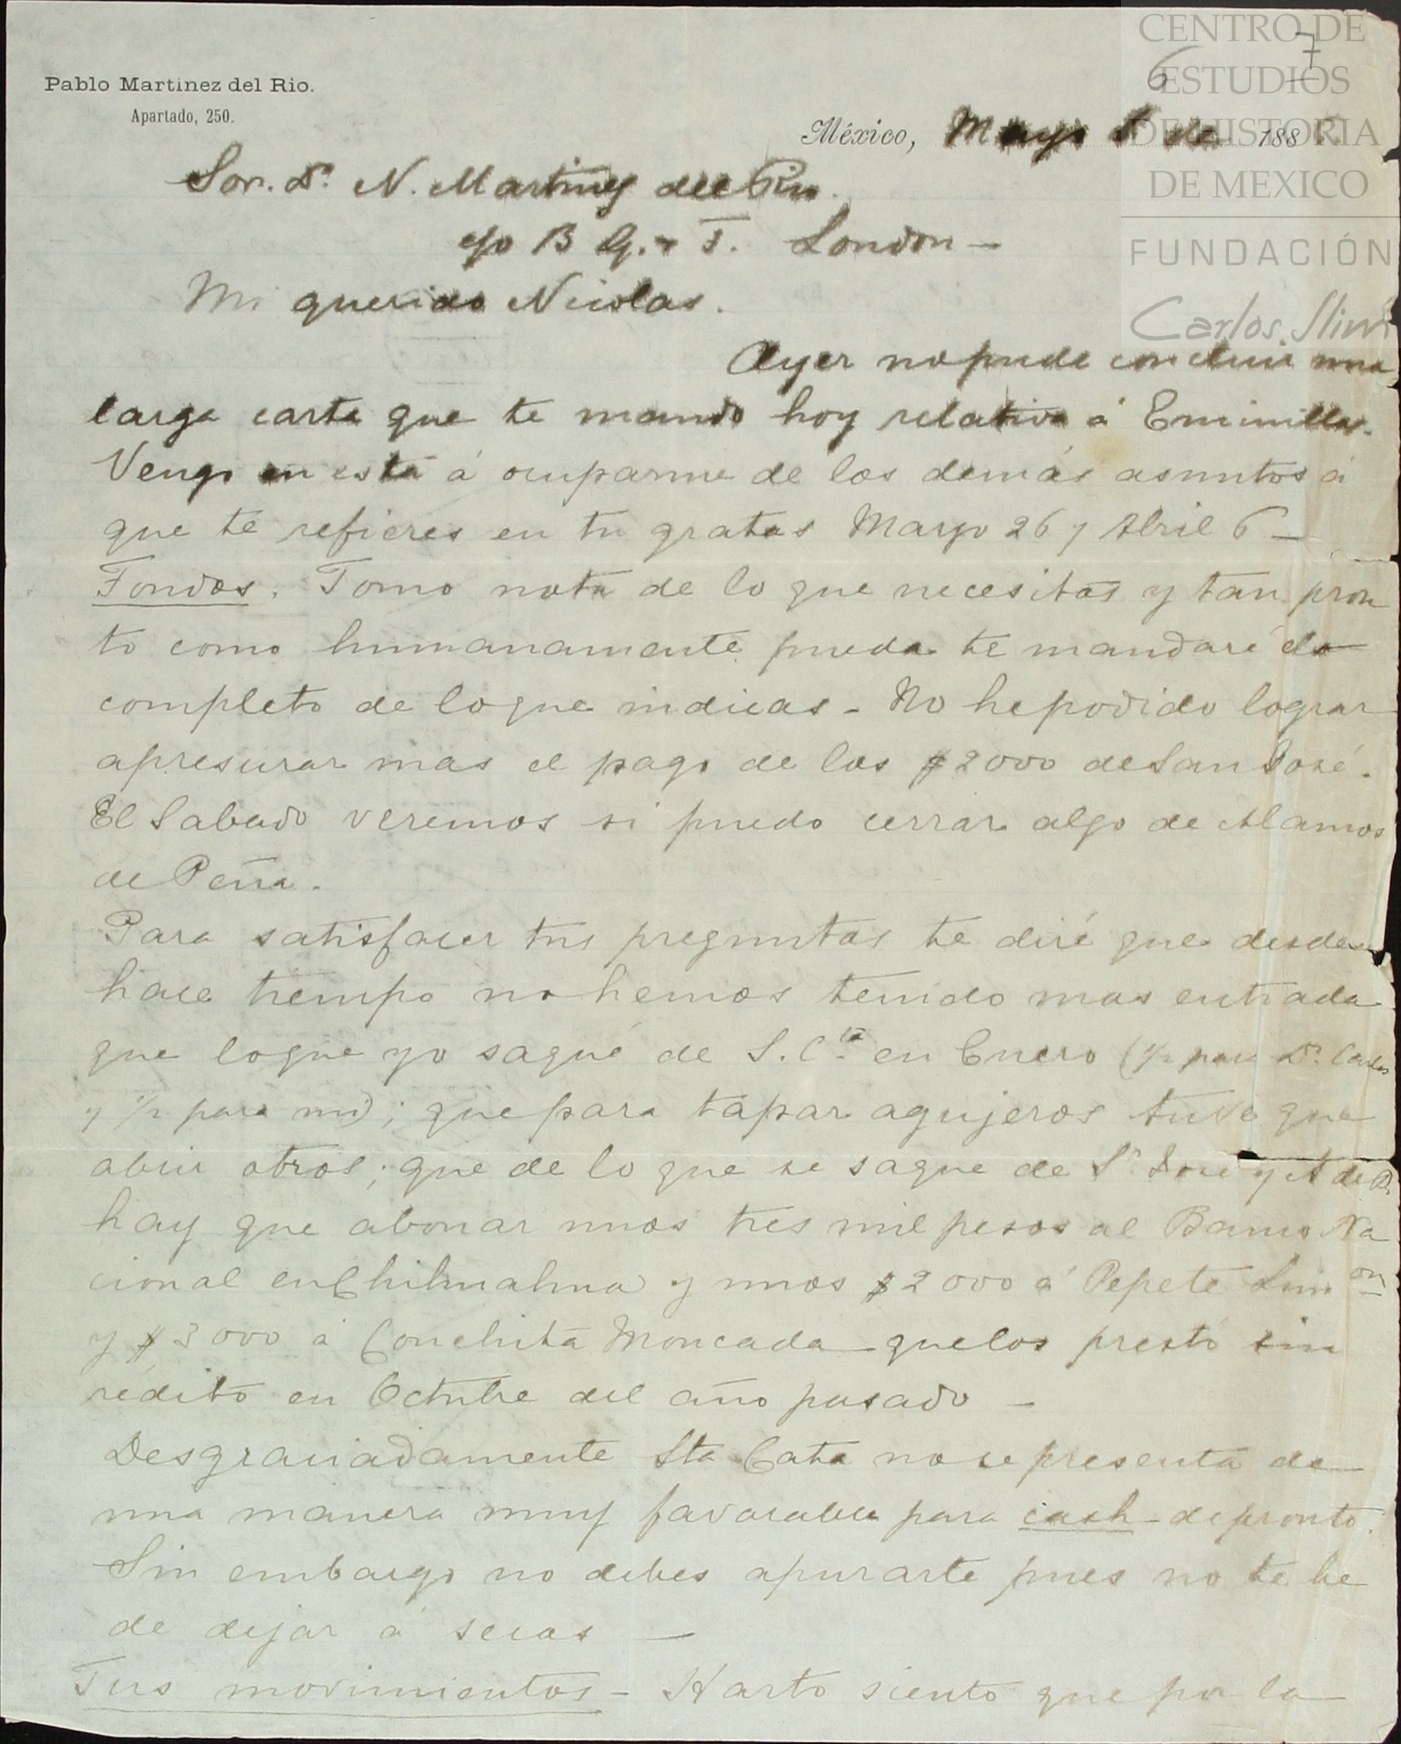 CENTRO DE
ESTUDIOS
DE HISTORIA
DE MEXICO
FUNDACIÓN
Carlos Slim
6 7
Pablo Martinez del Rio.
Apartado, 250.
México, Mayo de 188
Sor. Dn. N. Martinez del Rio.
c/o B G. & T. London —
Mi querido Nicolas.
Ayer no pude concluir una
larga carta que te mando hoy relativa á Encinillas.
Vengo en esta á ocuparme de los demás asuntos á
que te refieres en tu gratas Marzo 26 y Abril 6 —
Fondos. Tomo nota de lo que necesitas y tan pron
to como humanamente pueda te mandaré el
completo de lo que indicas - No he podido lograr
apresurar mas el pago de los $2000 de San José.
El Sabado veremos si puedo cerrar algo de Alamos
de Peña.
Para satisfacer tus preguntas te diré que desde
hace tiempo no hemos tenido mas entrada
que lo que yo saqué de S. Cta en Enero (1/2 para Dn. Carlos
y 1/2 para mi); que para tapar agujeros tuve que
abrir otros; que de lo que se saque de Sn José y A de P.
hay que abonar unos tres mil pesos al Banco Na
cional en Chihuahua y unos $2000 á Pepete
y $3000 á Conchita Moncada que los prestó sin
rédito en Octubre del año pasado —
Desgraciadamente Sta Cata no se presenta de
una manera muy favorable para cash de pronto.
Sin embargo no debes apurarte pues no te he
de dejar á secas —
Tus movimientos - Harto siento que por la